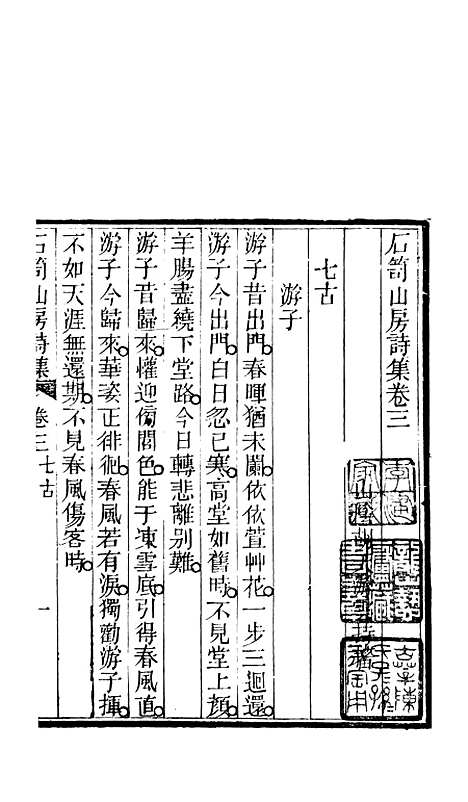 石笥山房詩集卷三
七古
游子
游子昔出門春暉猶未闌依依萱艸花一步三迴還
游子今出門白日忽已寒高堂如舊時不見堂上顏
羊腸盡繞下堂路今日轉悲離別難
游子昔歸來懽迎倚閭色能于凍雪底引得春風直
游子今歸來華姿正徘徊春風若有淚獨勸游子揮
不如天涯無還期不見春風傷客時
石笥山房詩集 卷三 七古 一